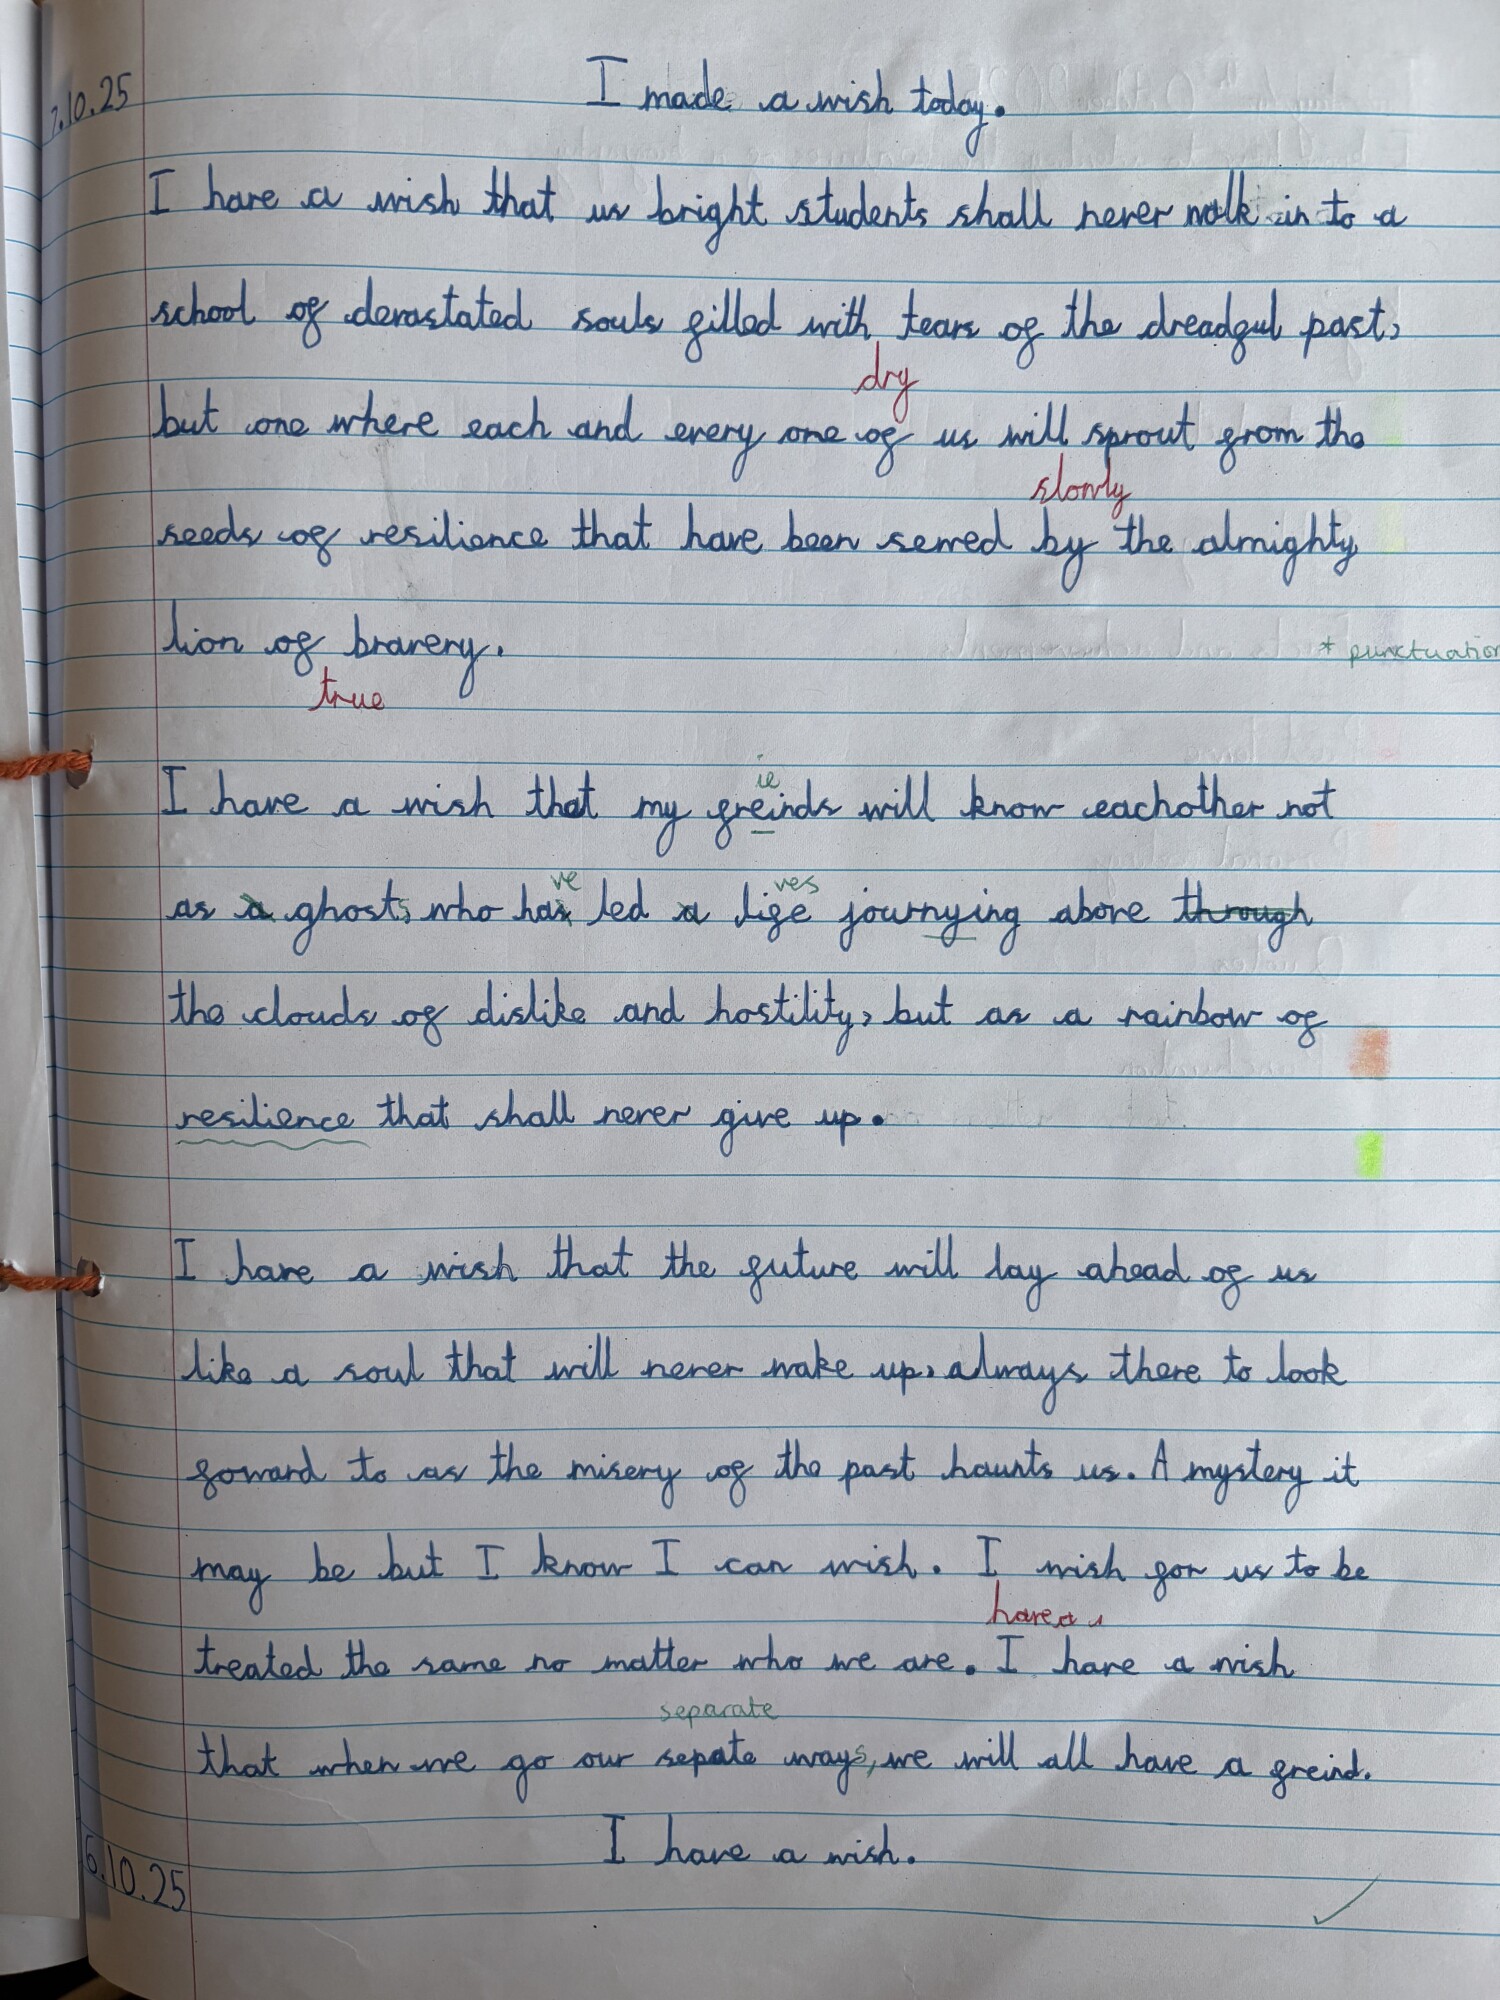 7.10.25
I made a wish today.
I have a wish that us bright students shall never walk in to a
school of devastated souls filled with tears of the dreadful past,
dry
but one where each and every one of us will sprout from the
slowly
seeds of resilience that have been sewed by the almighty
lion of bravery.
* punctuation
true
ie
I have a wish that my freinds will know eachother not
ve ves
as a ghosts who has led a life journying above through
the clouds of dislike and hostility, but as a rainbow of
resilience that shall never give up.
I have a wish that the future will lay ahead of us
like a soul that will never wake up, always there to look
foward to as the misery of the past haunts us. A mystery it
may be but I know I can wish. I wish for us to be
have a
treated the same no matter who we are. I have a wish
separate
that when we go our sepate ways, we will all have a freind.
I have a wish.
6.10.25